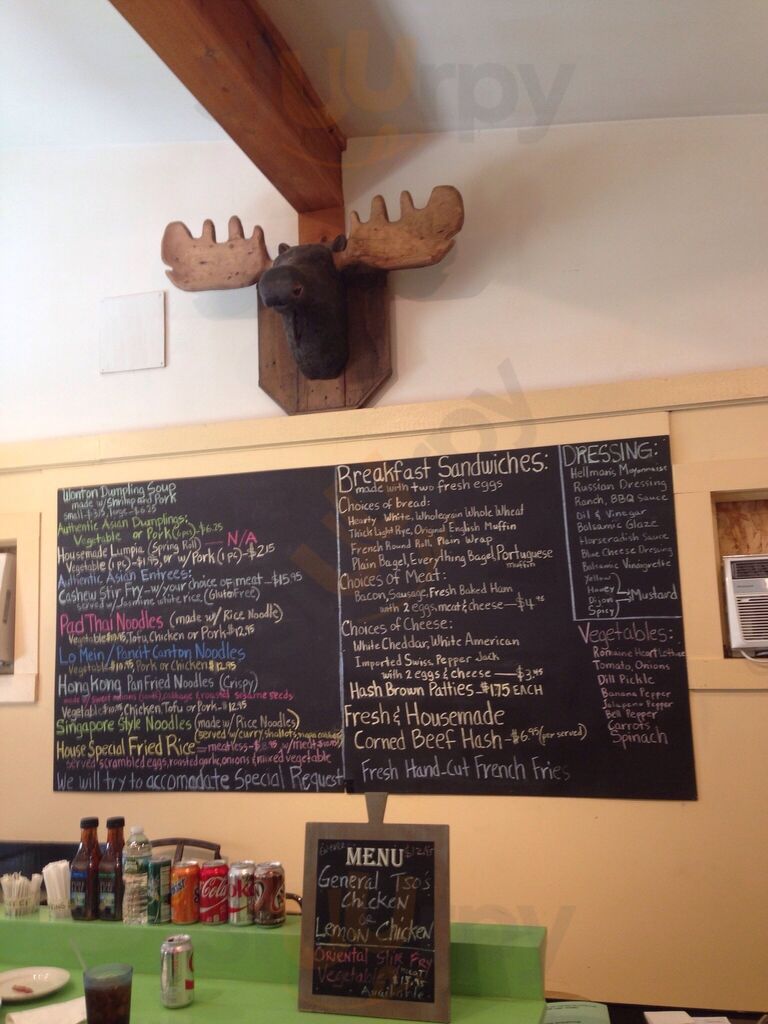 Wonton Dumpling Soup
made w/ Shrimp and Pork
small-$3.75, large-$6.25
Authentic Asian Dumplings:
Vegetable or Pork (6 pcs)-$6.25
Housemade Lumpia (Spring Roll) — N/A
Vegetable (1 pc)-$1.95, or w/ Pork (1 pc)-$2.15
Authentic Asian Entrees:
Cashew Stir Fry-w/your choice of meat-$15.95
served w/Jasmine white rice (Gluten Free)
Pad Thai Noodles (made w/ Rice Noodle)
Vegetable $10.95, Tofu, Chicken or Pork-$12.95
Lo Mein / Pancit Canton Noodles
Vegetable $10.95, Pork or Chicken $12.95
Hong Kong Pan Fried Noodles (Crispy)
cabbage & roasted sesame seeds
Vegetable $10.95 Chicken Tofu or Pork-$12.95
Singapore Style Noodles (made w/ Rice Noodles)
(served w/ curry, shallots,
House Special Fried Rice = meatless-
served scrambled eggs, roasted garlic, onions & mixed vegetable
We will try to accomodate Special Request
Breakfast Sandwiches:
made with two fresh eggs
Choices of bread:
Hearty White, Wholegrain Whole Wheat
Thick Light Rye, Original English Muffin
French Round Roll, Plain Wrap
Plain Bagel, Everything Bagel, Portuguese
muffin
Choices of Meat:
Bacon, Sausage, Fresh Baked Ham
with 2 eggs, meat & cheese — $4.95
Choices of Cheese:
White Cheddar, White American
Imported Swiss, Pepper Jack
with 2 eggs & cheese — $3.95
Hash Brown Patties - $1.75 EACH
Fresh & Housemade
Corned Beef Hash - $6.95 (per served)
Fresh Hand-Cut French Fries
DRESSING:
Hellmans Mayonnaise
Russian Dressing
Ranch, BBQ Sauce
Oil & Vinegar
Balsamic Glaze
Horseradish Sauce
Blue Cheese Dressing
Balsamic Vinaigrette
Yellow
Honey
Dijon
Spicy
Mustard
Vegetables:
Romaine Heart Lettuce
Tomato, Onions
Dill Pickle
Banana Pepper
Jalapeno Pepper
Bell Pepper
Carrots
Spinach
MENU
$12.95
General Tso's
Chicken
or
Lemon Chicken
Oriental Stir Fry
Vegetable (meat)
$15.95
Available
Coca-Cola